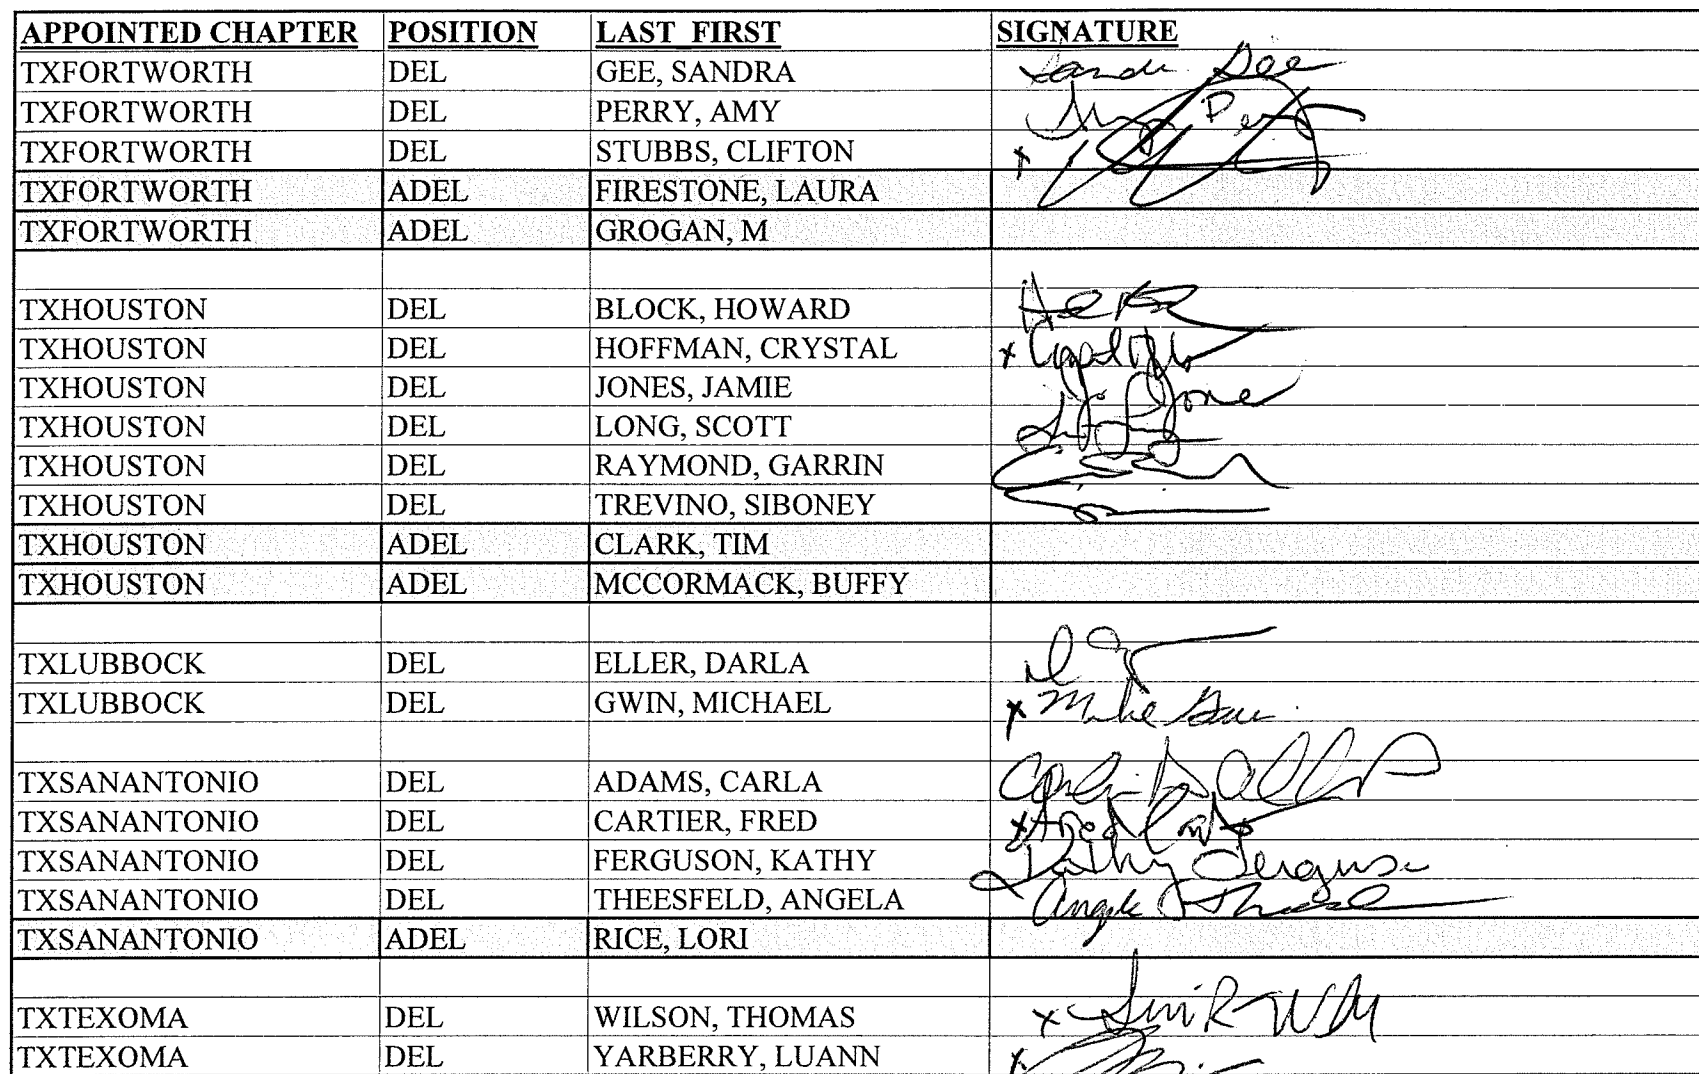 APPOINTED CHAPTER POSITION LAST FIRST SIGNATURE
TXFORTWORTH DEL GEE, SANDRA Sandra Gee
TXFORTWORTH DEL PERRY, AMY Amy Perry
TXFORTWORTH DEL STUBBS, CLIFTON x
TXFORTWORTH ADEL FIRESTONE, LAURA
TXFORTWORTH ADEL GROGAN, M
TXHOUSTON DEL BLOCK, HOWARD
TXHOUSTON DEL HOFFMAN, CRYSTAL x
TXHOUSTON DEL JONES, JAMIE Jones
TXHOUSTON DEL LONG, SCOTT
TXHOUSTON DEL RAYMOND, GARRIN
TXHOUSTON DEL TREVINO, SIBONEY
TXHOUSTON ADEL CLARK, TIM
TXHOUSTON ADEL MCCORMACK, BUFFY
TXLUBBOCK DEL ELLER, DARLA
TXLUBBOCK DEL GWIN, MICHAEL x Mike Gwin
TXSANANTONIO DEL ADAMS, CARLA
TXSANANTONIO DEL CARTIER, FRED x Fred
TXSANANTONIO DEL FERGUSON, KATHY Kathy Ferguson
TXSANANTONIO DEL THEESFELD, ANGELA Angela
TXSANANTONIO ADEL RICE, LORI
TXTEXOMA DEL WILSON, THOMAS x
TXTEXOMA DEL YARBERRY, LUANN x